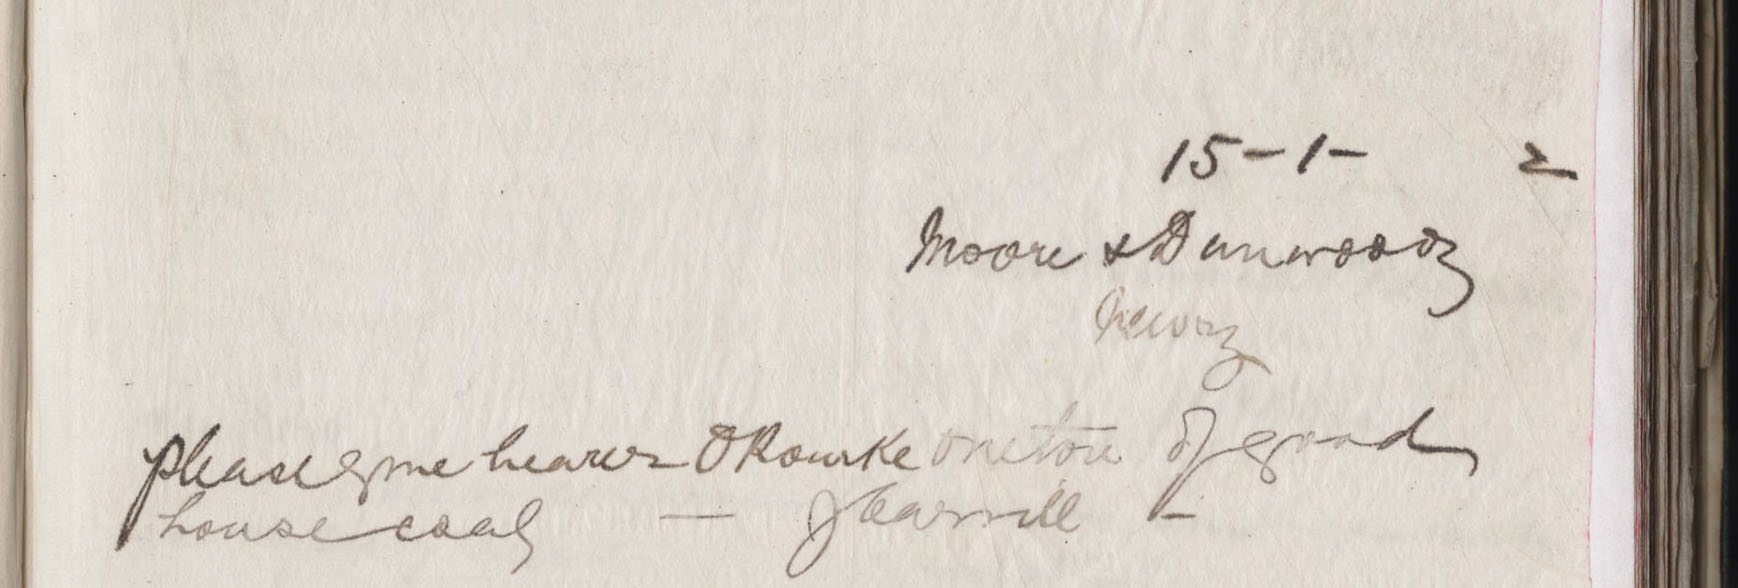 15-1- 2
Moore & Dunwoody
Newry
please give bearer O Rourke one ton of good
house coal — J Carvill -